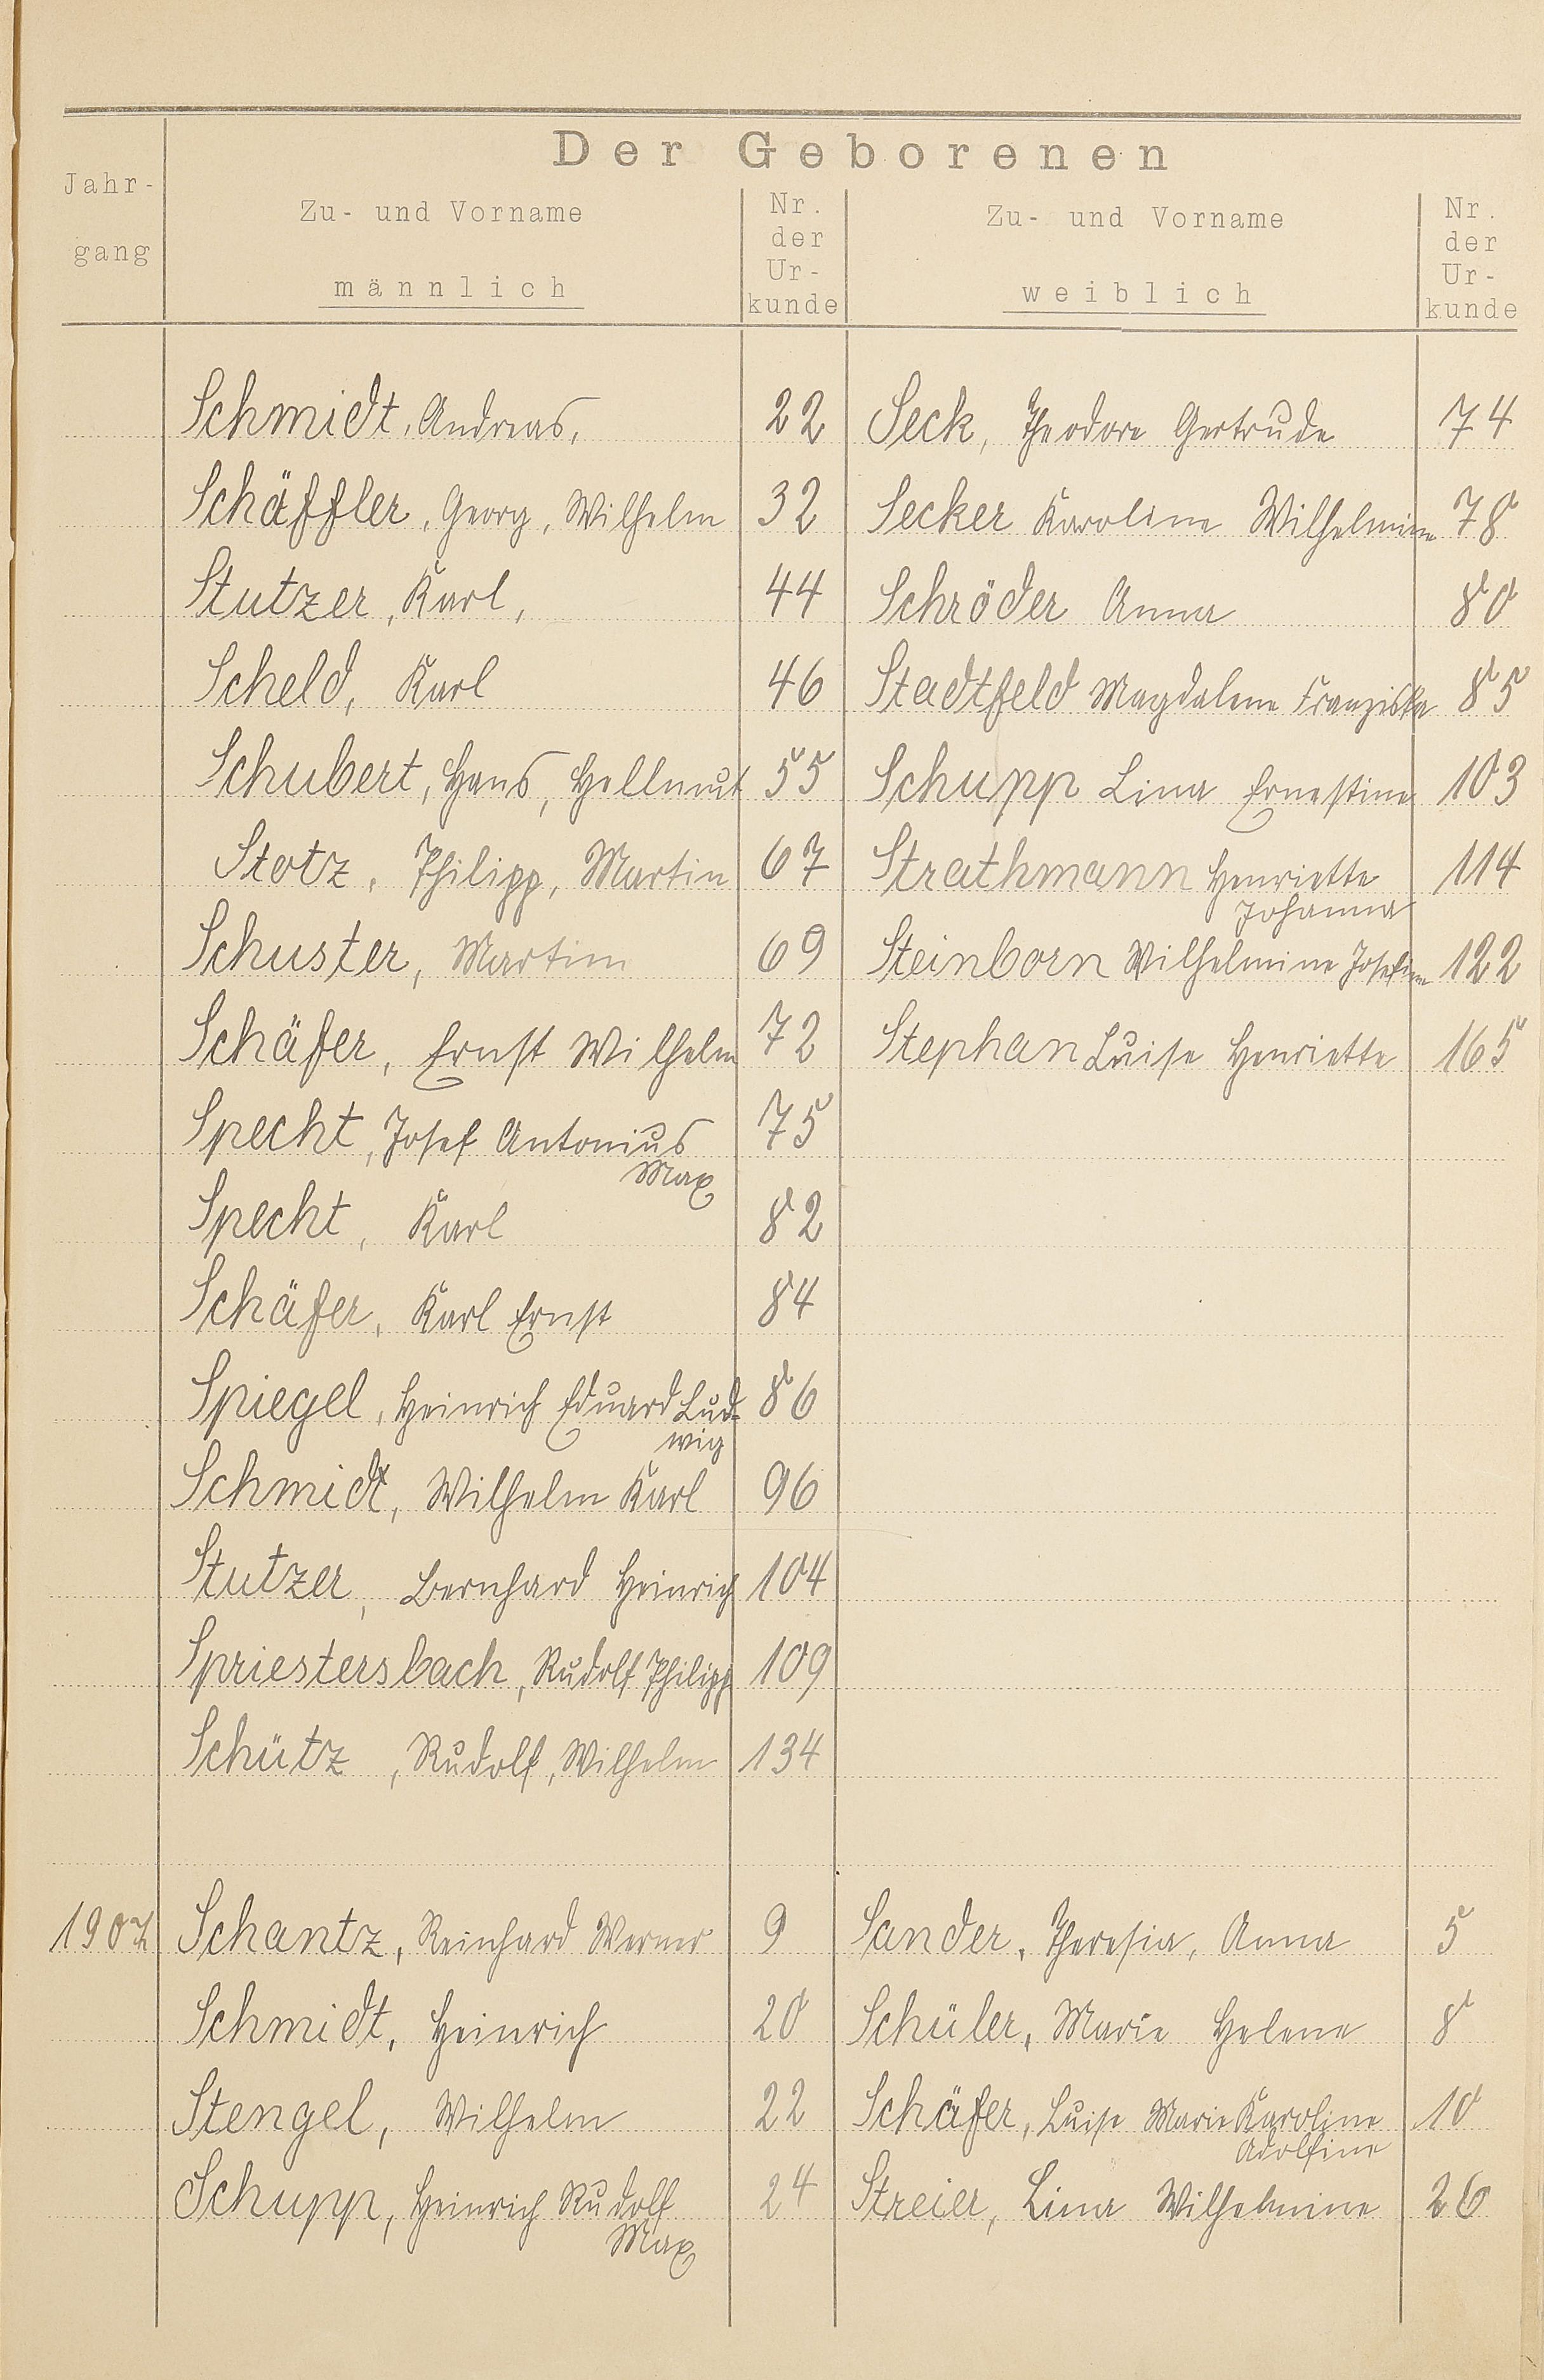 Der Geborenen
Jahr-
gang
Zu- und Vorname
männlich
Nr.
der
Ur-
kunde
Zu- und Vorname
weiblich
Nr.
der
Ur-
kunde
Schmidt, Andreas, 22 Seck, Theodore Gertrude 74
Schäffler, Georg, Wilhelm 32 Secker Karoline Wilhelmine 78
Stutzer, Karl, 44 Schröder Anna 80
Scheld, Karl 46 Stadtfeld Magdalene Franziska 85
Schubert, Hans, Hellmut 55 Schupp Lina Ernestine 103
Stotz, Philipp, Martin 67 Strathmann Henriette 114
Johanna
Schuster, Martin 69 Steinborn Wilhelmine Josefine 122
Schäfer, Ernst Wilhelm 72 Stephan Luise Henriette 165
Specht, Josef Antonius 75
Max
Specht, Karl 82
Schäfer, Karl Ernst 84
Spiegel, Heinrich Eduard Lud- 86
wig
Schmidt, Wilhelm Karl 96
Stutzer, Bernhard Heinrich 104
Spriestersbach, Rudolf Philipp 109
Schütz, Rudolf, Wilhelm 134
1907 Schantz, Reinhard Werner 9 Sander, Theresia, Anna 5
Schmidt, Heinrich 20 Schüler, Marie Helene 8
Stengel, Wilhelm 22 Schäfer, Luise Marie Karoline 10
Adolfine
Schupp, Heinrich Rudolf 24 Streier, Lina Wilhelmine 26
Max